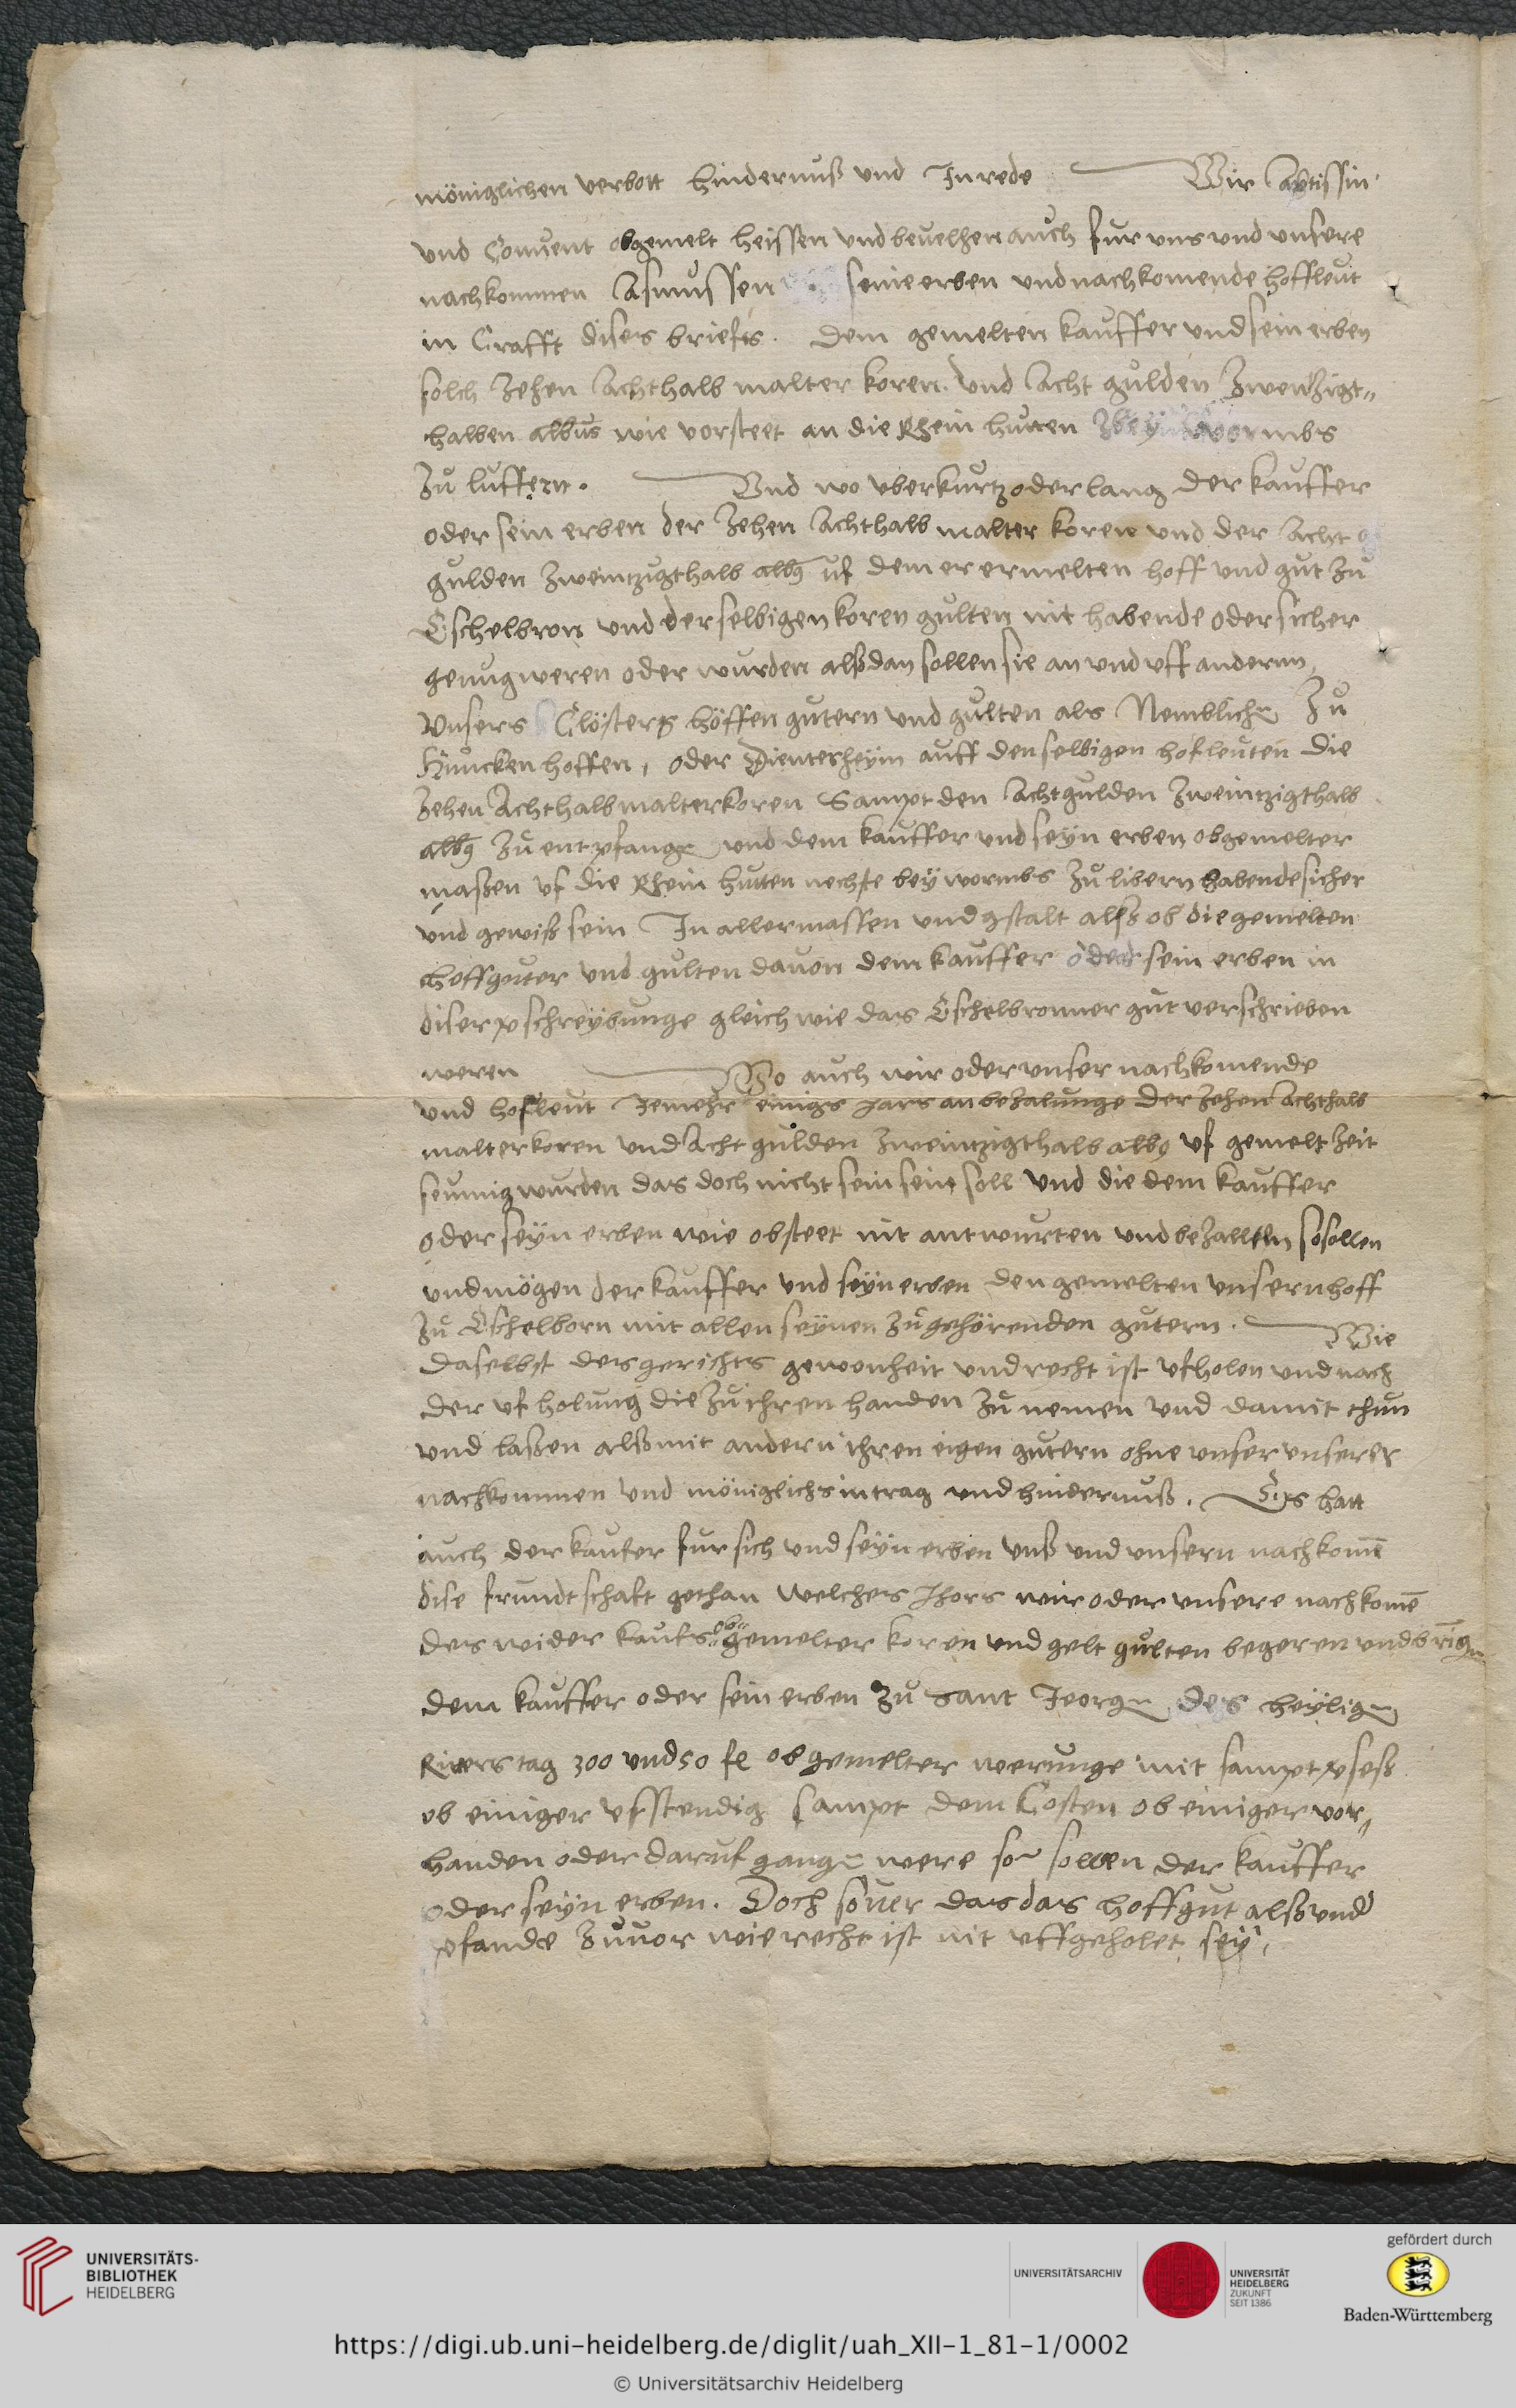 möniglichen verbott hindernuß und Inrede Wir Aptissin
und Convent obgemelt heissen und bevelhen auch fur uns und unsere
nachkommen Asmussen seine erben und nachkomende hoffleut
in Crafft dises briefts. Dem gemelten kauffer und sein erben
solch Zehen Achthalb malter koren. Und Acht gulden Zwentzigt„
halben albus wie vorsteet an die Rhein hutten Wormbs
Zu luffern. Und wo uberkurtz oder lang der kauffer
oder sein erben der Zehen Achthalb malter koren und der Acht
gulden Zweintzigthalb albg uf dem er ermelten hoff und gut Zu
Eschelbron und derselbigen koren gulten nit habende oder sicher
genug weren oder wurden alßdan sollen sie an und uff andernn
Unsers Closters höffen gutern und gulten als Nemblich Zu
hoffen, oder Dienterheym auff denselbigen hofleuten die
Zehen Achthalb malter koren Sampt den Acht gulden Zweintzigthalb
albg Zu entpfange und dem kauffer und seyn erben obgemelter
maßen uf die Rhein hutten nechste bey wormbs Zu libern habende sicher
und gewiß sein In allermassen und gstalt alß ob die gemelten
hoffguter und gulten davon dem kauffer oder sein erben in
diser pschreybunge gleich wie das Eschelbronner gut verschrieben
weren Wo auch wir oder unser nachkomende
und hofleut Jemehr einigs Jars an bezalunge der Zehen Achthalb
malter koren und Acht gulden Zweintzigthalb albg uf gemelt Zeit
seumig wurden das doch nicht sein sein soll und die dem kauffer
oder seyn erben wie obsteet nit antwurten und bezallten so sollen
und mögen der kauffer und seyn erben den gemelten unsern hoff
Zu Eschelborn mit allen seynen Zugehörenden gutern. Wie
daselbst des gerichts gewonheit und recht ist ufholen und nach
der ufholung die Zu ihren handen Zu nemen und damit thun
und laßen alß mit andern ihren eigen gutern ohne unser unserer
nachkommen und möniglichs intrag und hindernuß. Es hatt
auch der kaufer fur sich und seyn erben unß und unsern nachkome
dise frundtschaft gethan welches Jhors wir oder unsere nachkome
des wider kaufs ob„gemelter koren und gelt gulten begeren und bring
dem kauffer oder sein erben Zu Sant Jeorg des heylig
Ritters tag 300 und 50 fl obgemelter werunge mit sampt pseß
ob einiger usstendig sampt dem Costen ob einiger vor„
handen oder daruf gange were so sollen der kauffer
oder seyn erben. Doch sover das das hoffgut alß und
pfande Zuvor wie recht ist nit uffgeholet sey,
UNIVERSITÄTS-
BIBLIOTHEK
HEIDELBERG
UNIVERSITÄTSARCHIV
UNIVERSITÄT
HEIDELBERG
ZUKUNFT
SEIT 1386
gefördert durch
Baden-Württemberg
https://digi.ub.uni-heidelberg.de/diglit/uah_XII-1_81-1/0002
© Universitätsarchiv Heidelberg